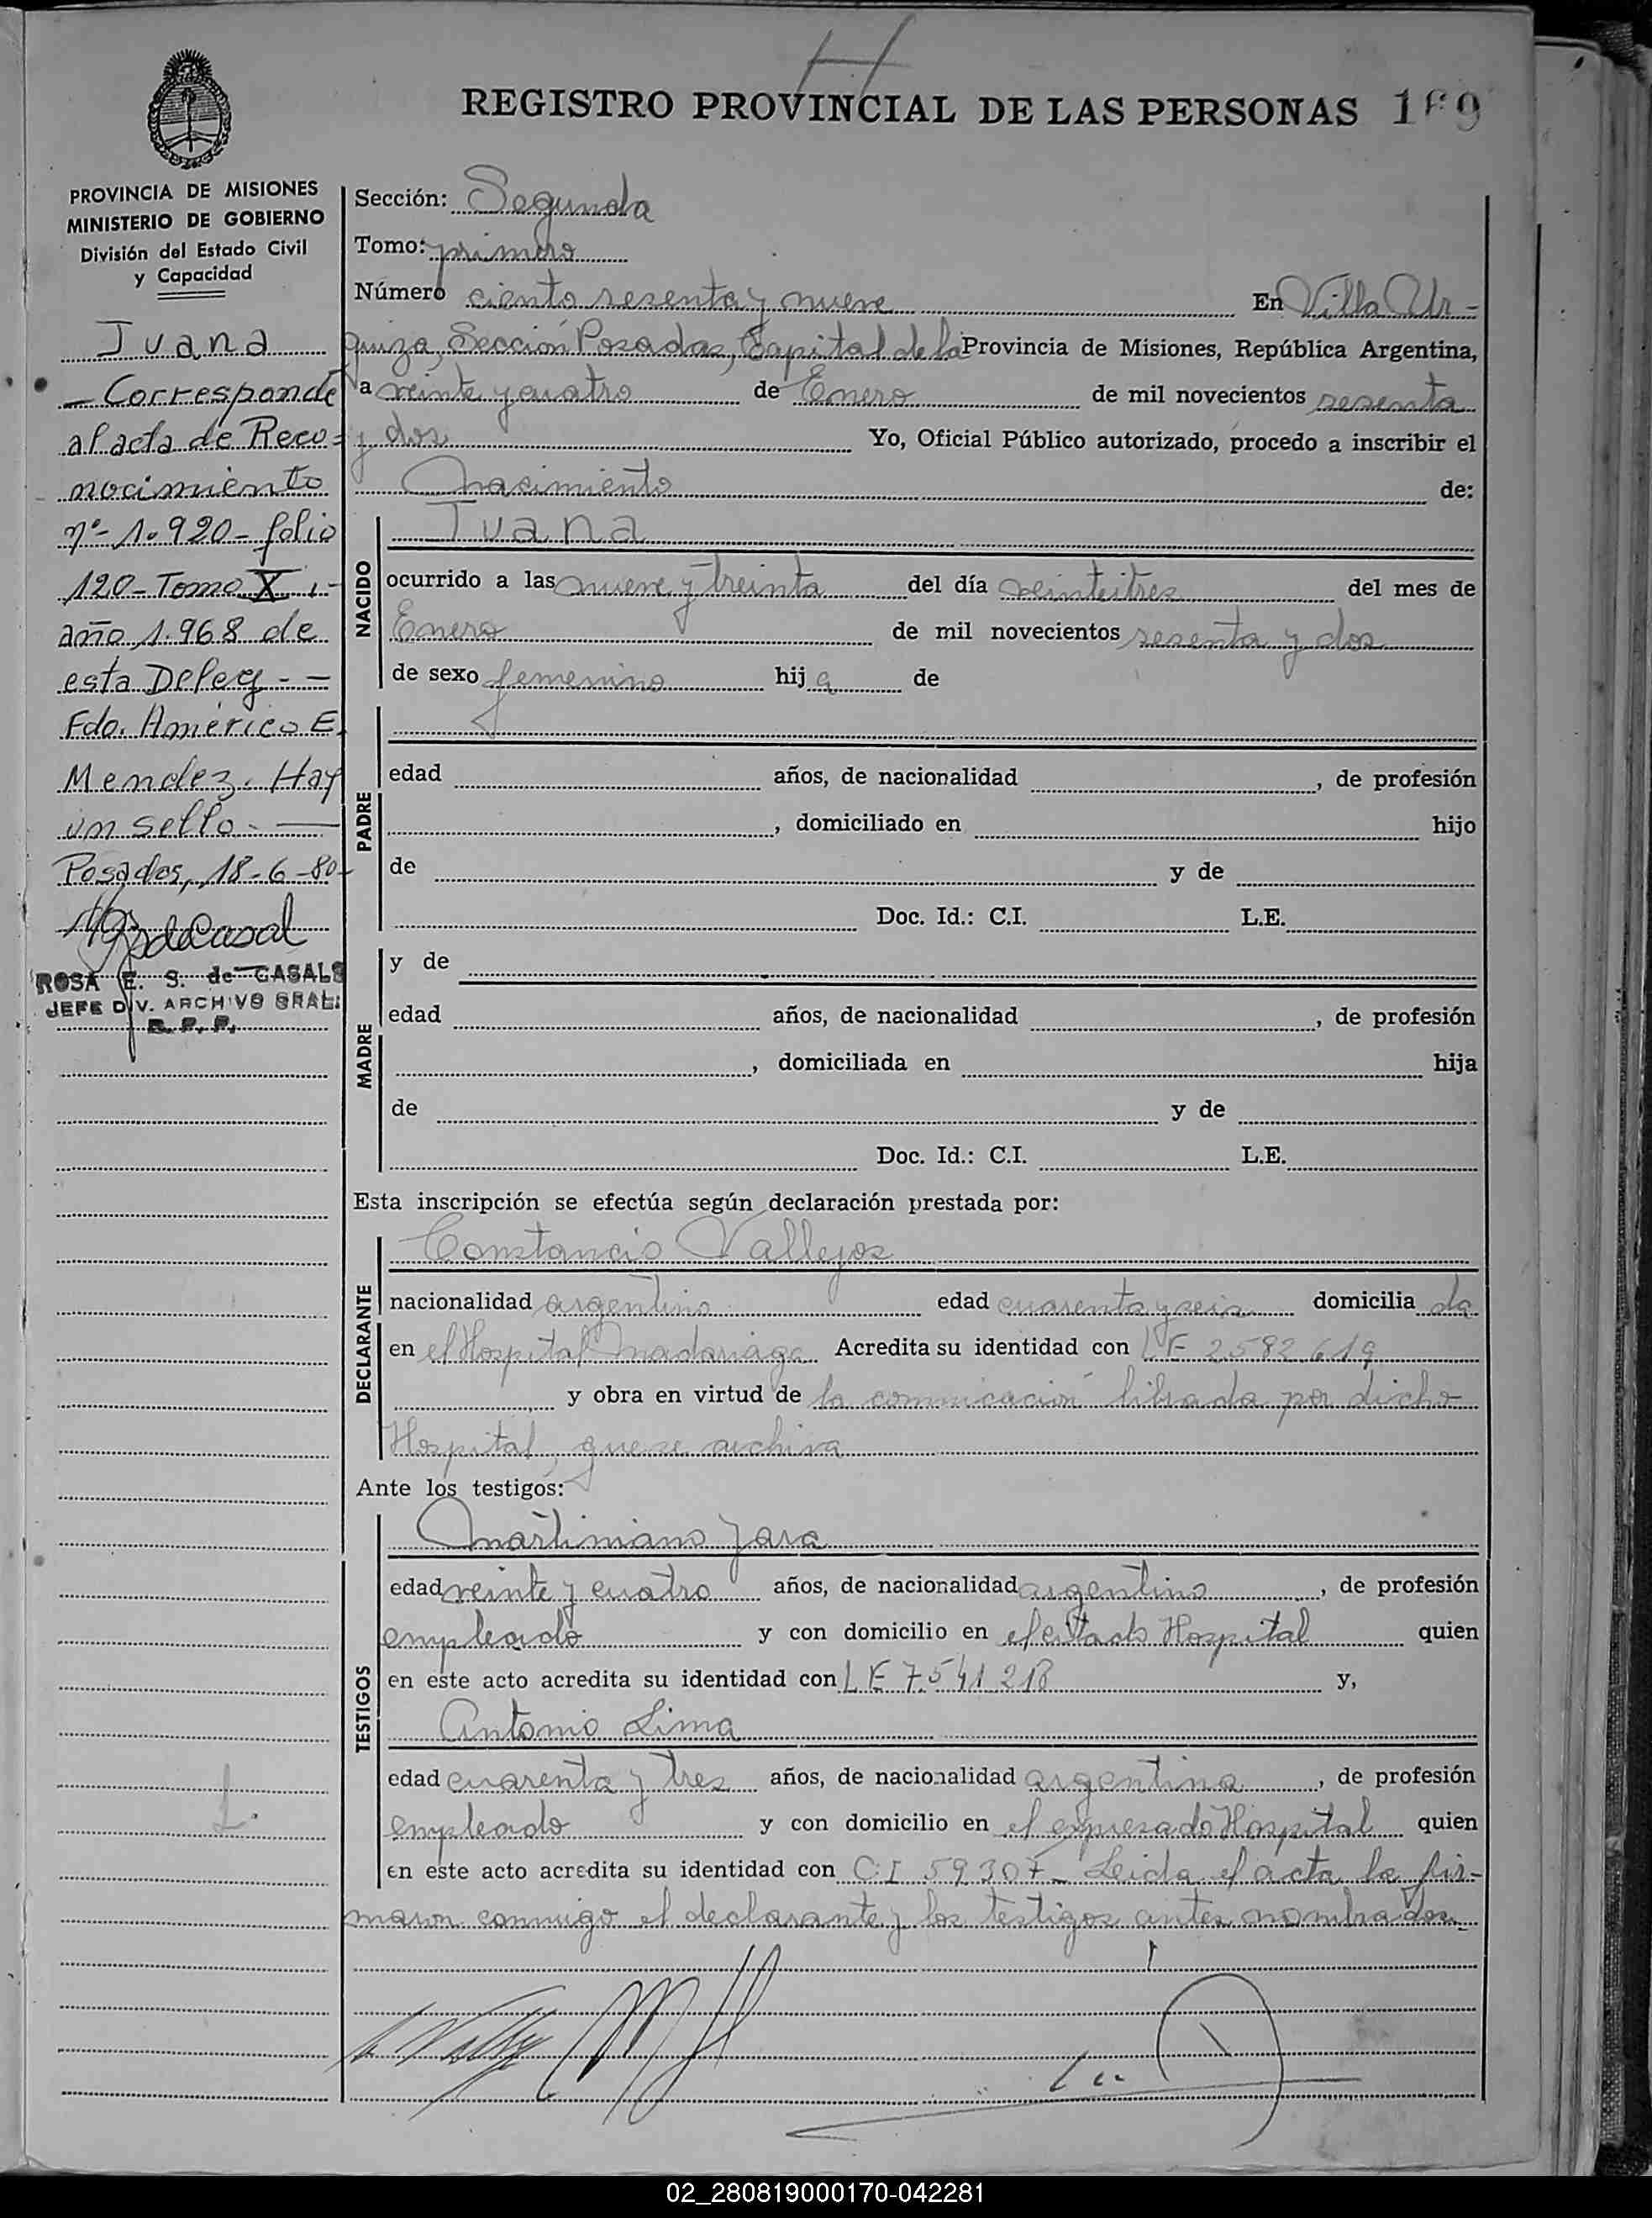 REGISTRO PROVINCIAL DE LAS PERSONAS 169
PROVINCIA DE MISIONES
MINISTERIO DE GOBIERNO
División del Estado Civil
y Capacidad
Juana
- Corresponde
al acta de Reco-
nocimiento
nº- 1.920- folio
120- Tomo X.-
año 1.968 de
esta Deleg - -
Fdo. Américo E.
Mendez. Hay
un sello. -
Posadas, 18-6-80-
ROSA E. S. de CASALS
JEFE DIV. ARCHIVO GRAL.
R. P. P.
L.
Sección: Segunda
Tomo: primero
Número ciento sesenta y nueve En Villa Ur-
quiza, Sección Posadas, Capital de la Provincia de Misiones, República Argentina,
a veinte y cuatro de Enero de mil novecientos sesenta
y dos Yo, Oficial Público autorizado, procedo a inscribir el
nacimiento de:
NACIDO
Juana
ocurrido a las nueve y treinta del día veintitres del mes de
Enero de mil novecientos sesenta y dos
de sexo femenino hija de
PADRE
edad años, de nacionalidad , de profesión
, domiciliado en hijo
de y de
Doc. Id.: C.I. L.E.
MADRE
y de
edad años, de nacionalidad , de profesión
, domiciliada en hija
de y de
Doc. Id.: C.I. L.E.
Esta inscripción se efectúa según declaración prestada por:
DECLARANTE
Constancio Vallejos
nacionalidad argentino edad cuarenta y seis domicilia da
en el Hospital Madariaga Acredita su identidad con LE 2582619
y obra en virtud de la comunicación librada por dicho
Hospital, que se archiva
Ante los testigos:
TESTIGOS
Martiniano Jara
edad veinte y cuatro años, de nacionalidad argentino, de profesión
empleado y con domicilio en el citado Hospital quien
en este acto acredita su identidad con LE 7.541.218 y,
Antonio Lima
edad cuarenta y tres años, de nacionalidad argentina, de profesión
empleado y con domicilio en el expresado Hospital quien
en este acto acredita su identidad con C.I 59.307- Leida el acta la fir-
maron conmigo el declarante y los testigos antes nombrados.
02_280819000170-042281